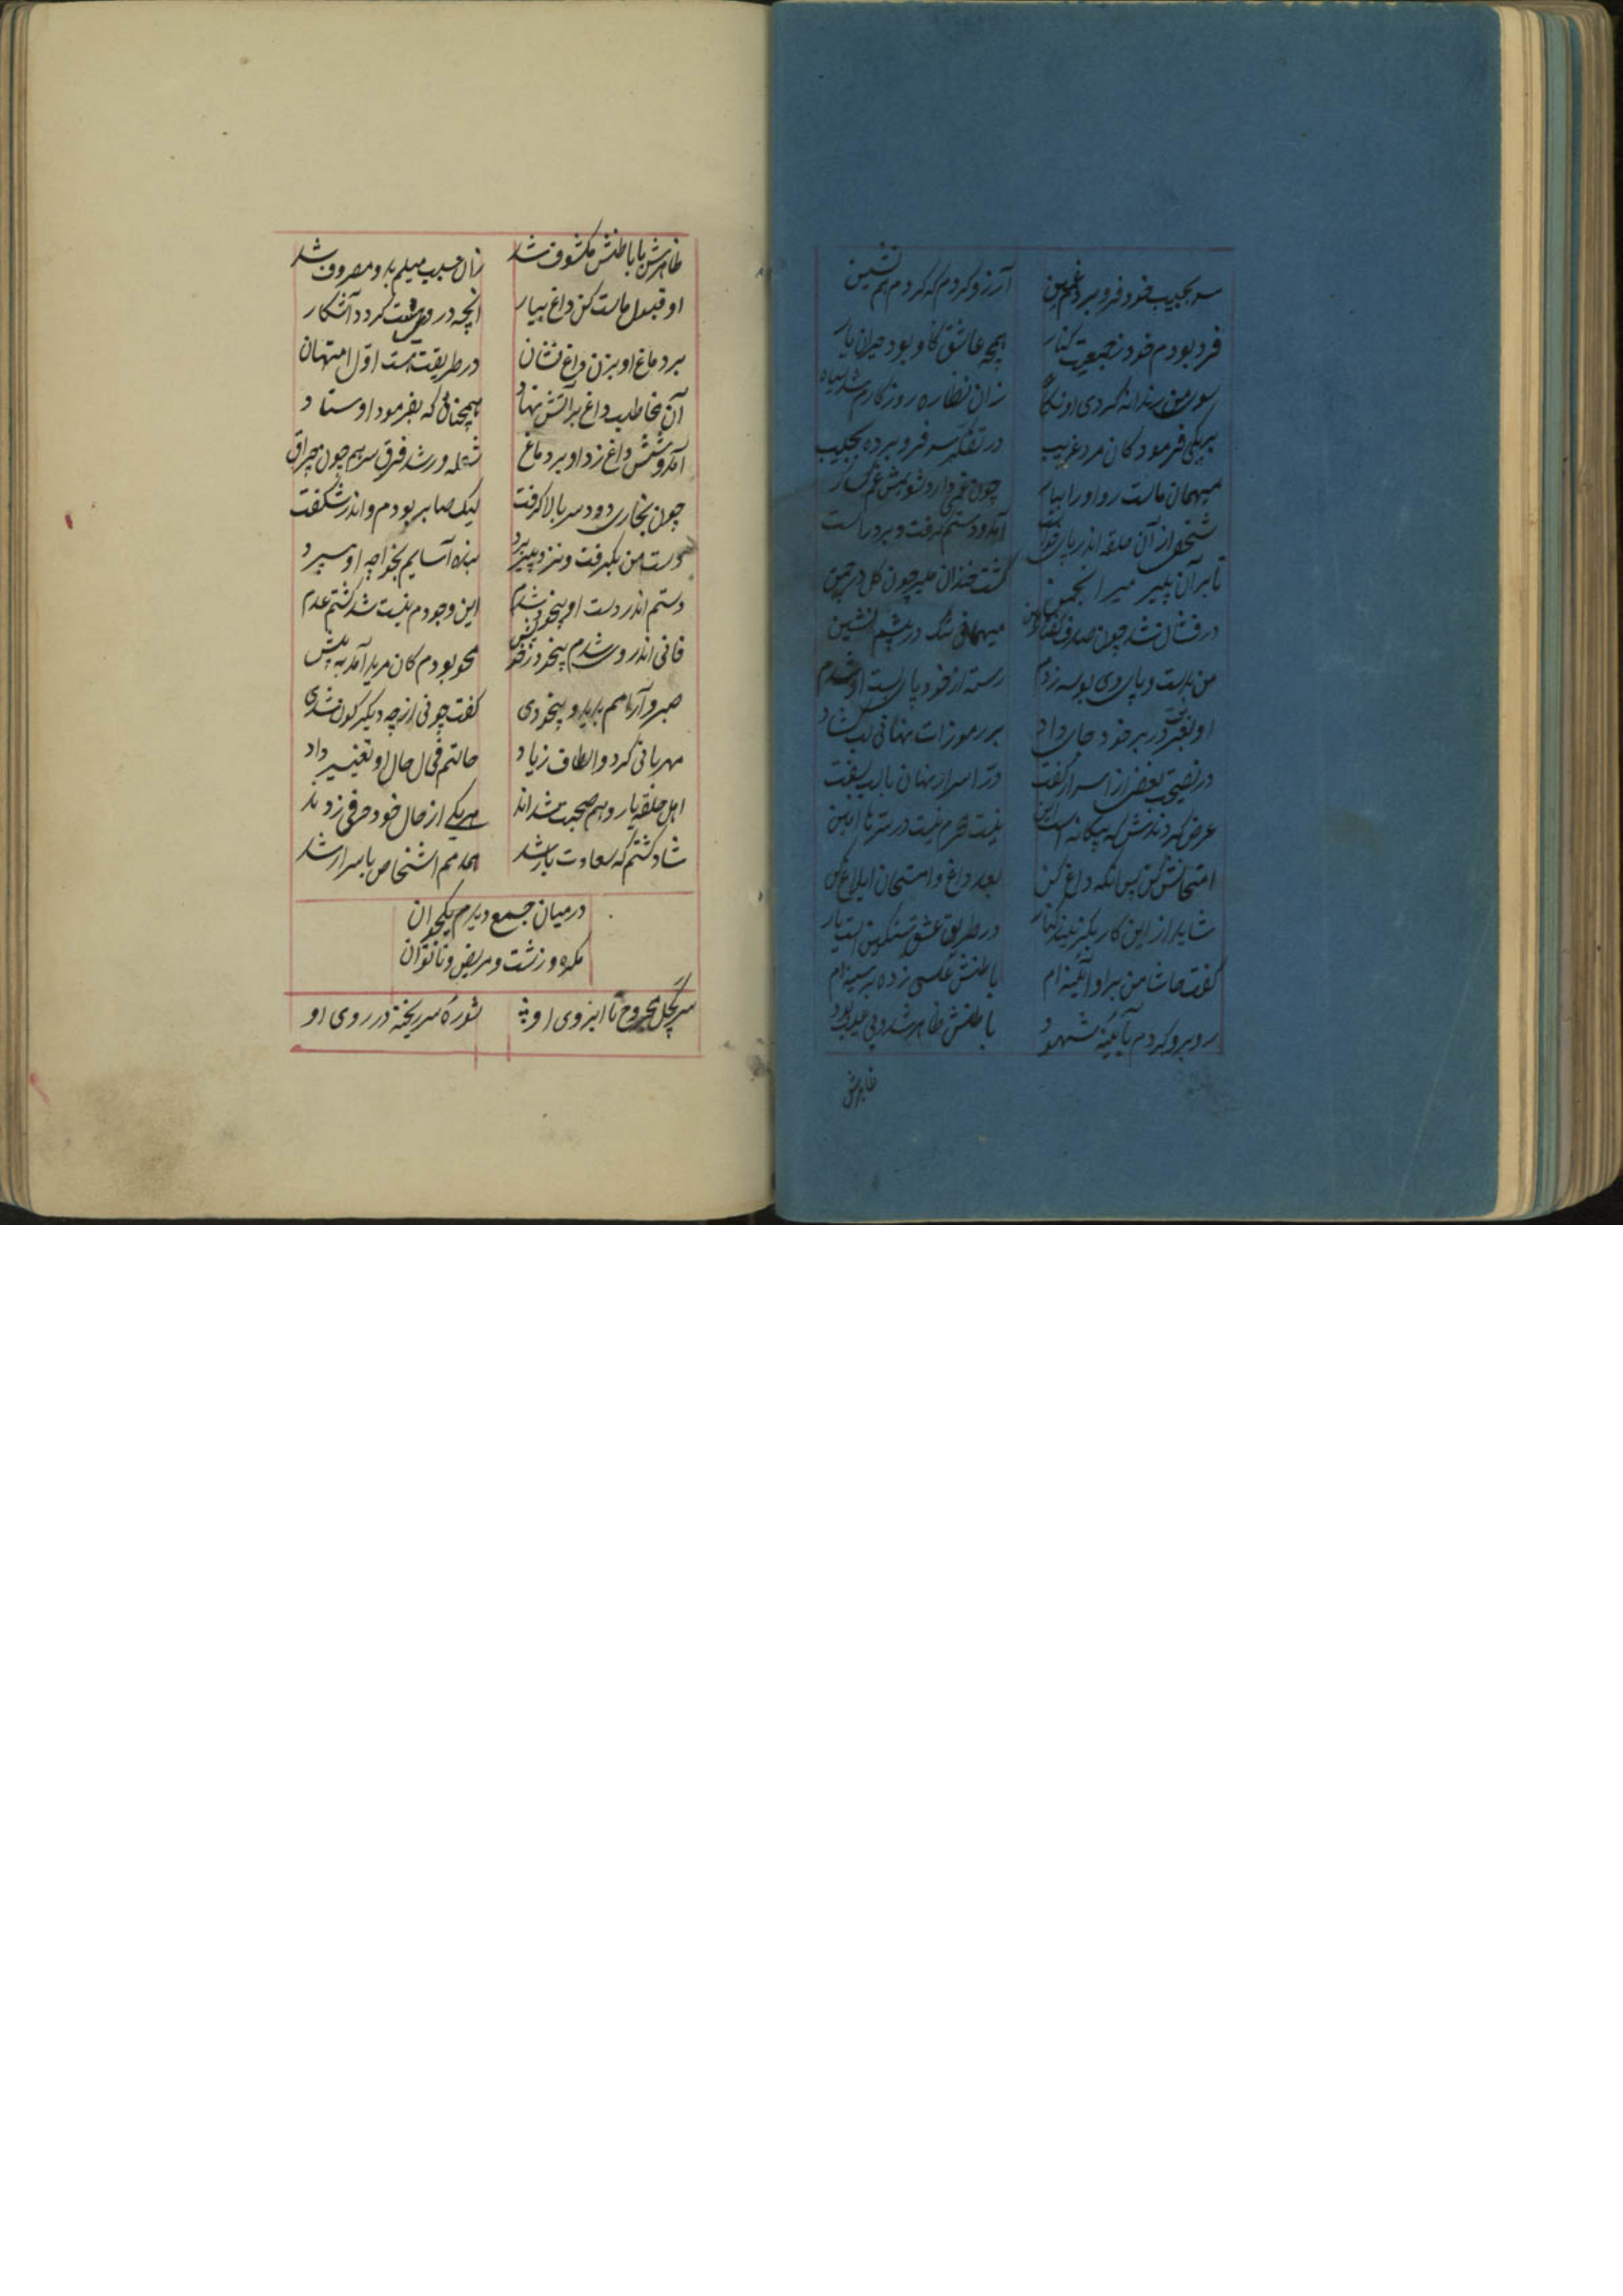 سر بجیب خود فرو بردم غمین آرزو کردم که کردم هم نشین
فرد بودم خود ز جمعیت کنار همچه عاشق کاو بود حیران یار
سوی من رندانه کردی او نگاه زان نظاره روزکارم شد سیاه
بر یکی فرمود کان مرد غریب در تفکر سر فرو برده بجیب
میهمان ماست رو او را بیار چون غمی دارد شویمش غم کسار
شخصی از آن حلقه اندر پای خواست آمد و دستم گرفت و برد راست
تا بر آن پیر میر انجمن گشت خندان میر چون کل در چمن
در فشان شد چون صدف میهمانی نیک در پیشم نشین
من بدست و پای وی بوسه زدم رسته از خود پای بست او شدم
او بعزت در بر خود جای داد بر رموزات نهانی لب گشاد
در نصیحت بعضی از اسرار گفت در اسرار نهان با لب بسفت
عرض کردندش که بیکانه است این نیست محرم نیست در سر ما امین
امتحانش کن پس آنکه داغ کن بعد داغ و امتحان ابلاغ کن
شاید از این کار بکزیند کنار در طریق عشق سنکین است بار
گفت حاشا من بر او آئینه ام باطنش عکسی زده بر سینه ام
روبرو کردم بآئینه شهود باطنش ظاهر شد و بی عیب بود
ظاهرش
ظاهرش با باطنش مکشوف شد زان سبب میلم به او مصروف شد
او قبول ماست کن داغ بیار آنچه در وی هست کردد آشکار
بر دماغ او بزن داغ نشان در طریقت هست اول امتهان
آن مخاطب داغ بر آتش نهاد همچنان که بفرمود اوستاد
آمد و شش داغ زد او بر دماغ شعله ور شد فرق سر هم چون چراق
چون بخاری دود سر بالا کرفت لیک صابر بودم و اندر شکفت
دست من بکرفت و نزد پیر برد بنده آسایم بخواجه او سپرد
دستم اندر دست او بیخود شدم این وجودم نیست شد کشتم عدم
فانی اندر وی شدم بیخود ز خویش محو بودم کان مرید آمد به پیش
صبر و آرامم برید و بیخودی کفت چونی از چه دیکر کون شدی
مهربانی کرد و الطاف زیاد حالتم فی الحال او تغییر داد
اهل حلقه یار و هم صحبت شدند هر یکی از حال خود حرفی زدند
شاد کشتم که سعاوت یار شد همدمم اشخاص با اسرار شد
در میان جمع دیدم یکجوان
مکره و زشت و مریض و ناتوان
سر کچل مجروح تا ابروی او شوره سر ریخته در روی او